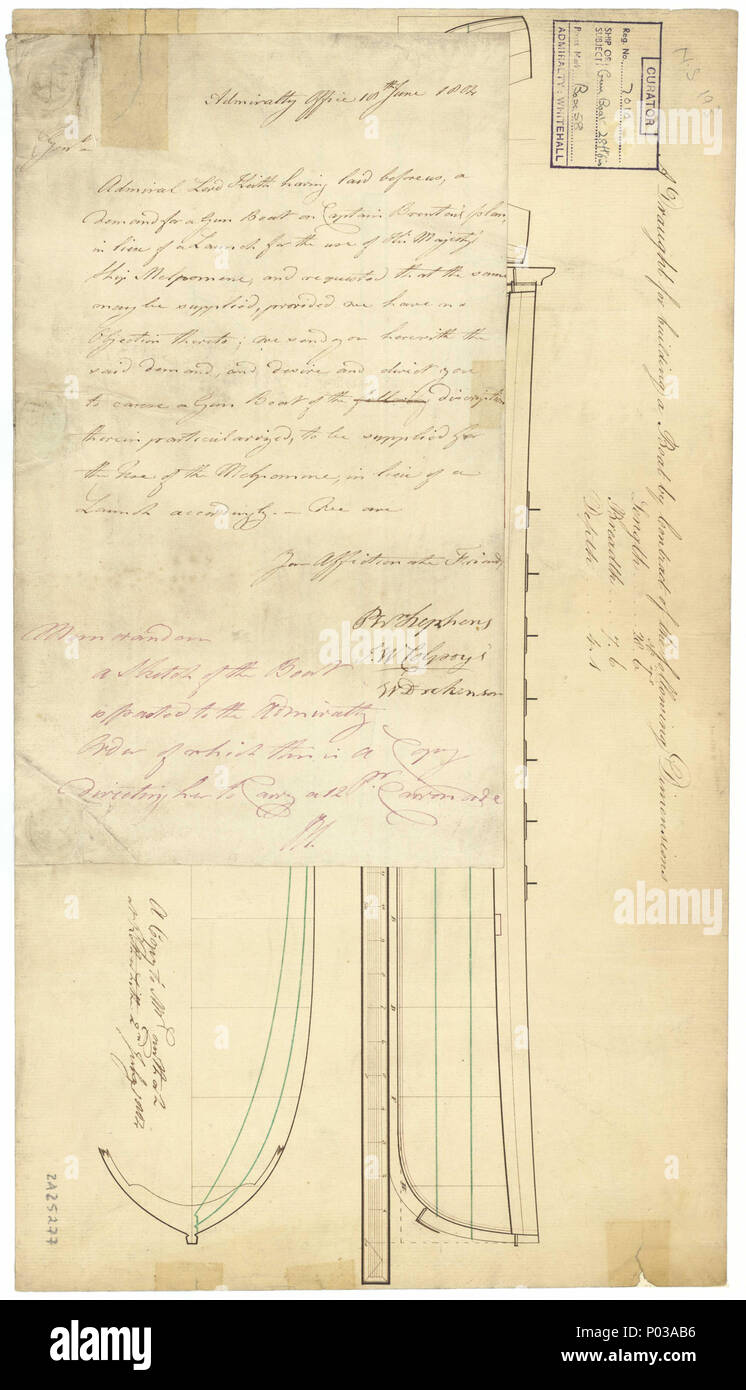 Admiralty Office 18th June 1804
Gent.n
Admiral Lord Keith having laid before us, a
demand for a Gun Boat on Captain Brenton's plan,
in lieu of a Launch for the use of His Majesty's
Ship Melpomene, and requested that the same
may be supplied, provided we have no
Objection thereto; we send you herewith the
said demand, and desire and direct you
to cause a Gun Boat of the following discription
therein particularized, to be supplied for
the Use of the Melpomene, in lieu of a
Launch accordingly. We are
Your Affectionate Friends
P Stephens
J W Colpoys
W Dickenson
Memorandum
a Sketch of the Boat
to the Admiralty
Order of which this is a Copy
Directing her to Carry a 12 Pr. Carronade
CURATOR
Reg. No. 7010
SHIP OR SUBJECT Gun Boat 28ft 6in
Press Mark Box 58
ADMIRALTY: WHITEHALL
A Draught for building a Boat by Contract of the following Dimensions
Ft In
Length 28.6
Breadth 7.6
Depth
A Copy to Mr
at Rotherhithe 2nd of July 1804
ZAZ5277
alamy
alamy
Image ID: P03AB6
www.alamy.com